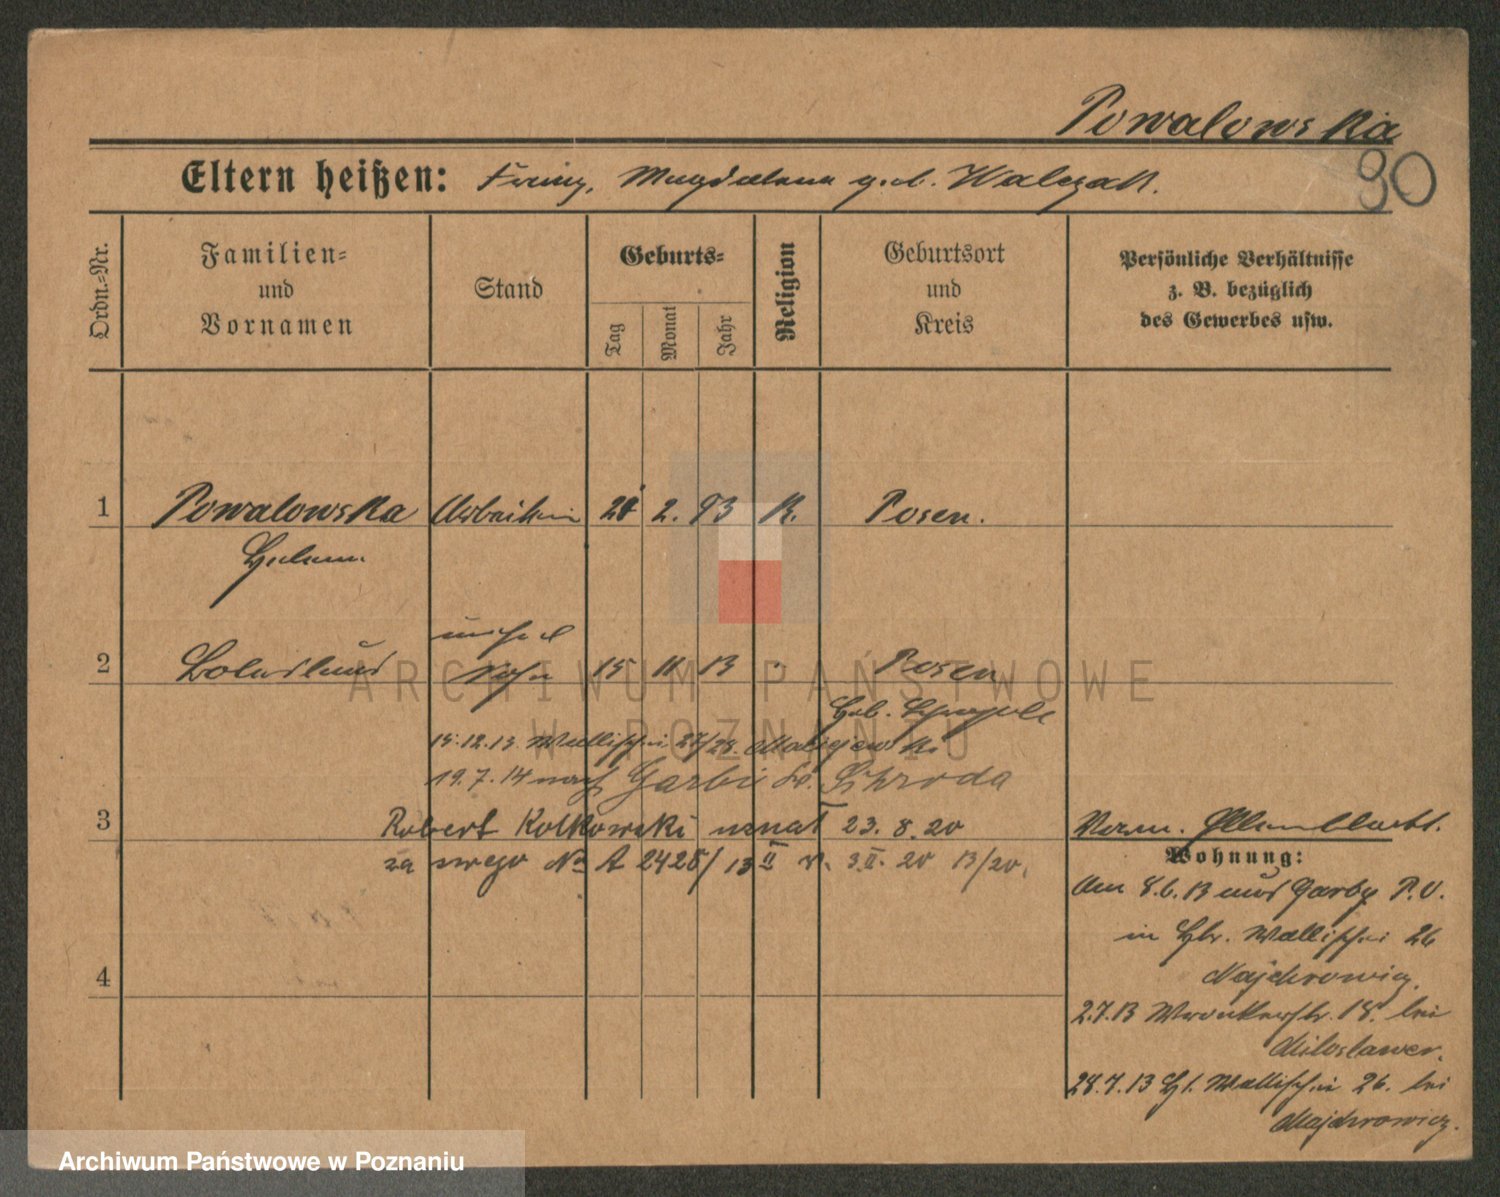 Powalowska
90
Eltern heißen: Franz, Magdalena geb. Walczak.
Ordn.-Nr.
Familien-
und
Vornamen
Stand
Geburts-
Tag
Monat
Jahr
Religion
Geburtsort
und
Kreis
Persönliche Verhältnisse
z. B. bezüglich
des Gewerbes usw.
1 Powalowska Arbeiterin 2. 93 K. Posen.
Helena
unehel
2 Boleslaus Sohn 15 11 13 Posen
ARCHIWUM PAŃSTWOWE
W POZNANIU
15.12.13 Wallischei 27/28. Maciejewski
19.7.14 nach Garbi Kr. Schroda
3 Robert Kolkowski uznał 23. 8. 20
za swego No A 2428/13 II v. 3.II. 20 13/20.
Verm.
Wohnung:
Am 8.6.13 aus Garby P.O.
in Wallischei 26
Majchrowicz.
2.7.13 Wronkerstr. 18. bei
Miloslawer.
28.7.13 Wallischei 26. bei
Majchrowicz.
4
Archiwum Państwowe w Poznaniu